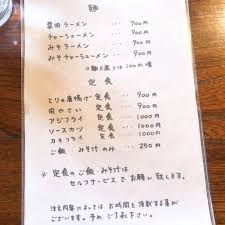 麺
醤油ラーメン ・・・ 700円
チャーシューメン ・・・ 900円
みそラーメン ・・・ 900円
みそチャーシューメン ・・・ 900円
○麺大盛りは100円増
定食
とりの唐揚げ定食 ・・・ 900円
肉やさい 定食 ・・・ 900円
アジフライ 定食 ・・・ 900円
ソースカツ 定食 ・・・ 1000円
カキフライ 定食 ・・・ 1000円
ご飯・みそ汁のみ ・・・ 250円
※ 定食のご飯・みそ汁は
セルフサービスでお願い致します。
注文内容によってはお時間を頂戴する事が
ございます。予めご了承下さい。